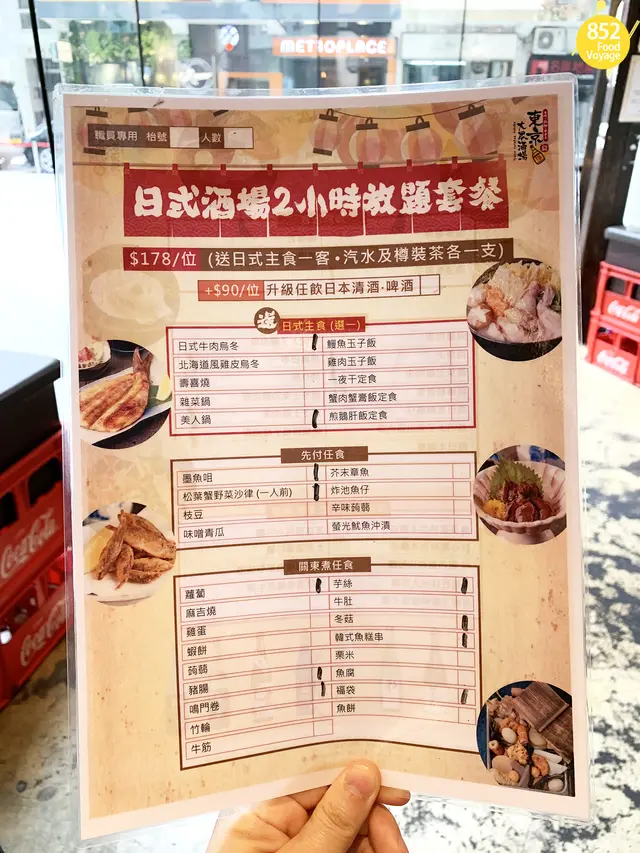 852
Food
Voyage
METROPLACE
職員專用 枱號 人數
東京
大眾酒場
日式酒場2小時放題套餐
$178/位 (送日式主食一客・汽水及樽裝茶各一支)
+$90/位 升級任飲日本清酒・啤酒
選 日式主食 (選一)
日式牛肉烏冬 鰻魚玉子飯
北海道風雞皮烏冬 雞肉玉子飯
壽喜燒 一夜干定食
雜菜鍋 蟹肉蟹膏飯定食
美人鍋 煎鵝肝飯定食
先付任食
墨魚咀 芥末章魚
松葉蟹野菜沙律 (一人前) 炸池魚仔
枝豆 辛味蒟蒻
味噌青瓜 螢光魷魚沖漬
關東煮任食
蘿蔔 芋絲
麻吉燒 牛肚
雞蛋 冬菇
蝦餅 韓式魚糕串
蒟蒻 栗米
豬腸 魚腐
鳴門卷 福袋
竹輪 魚餅
牛筋
Coca-Cola
Coca-Cola
Coca-Cola
Coca-Cola